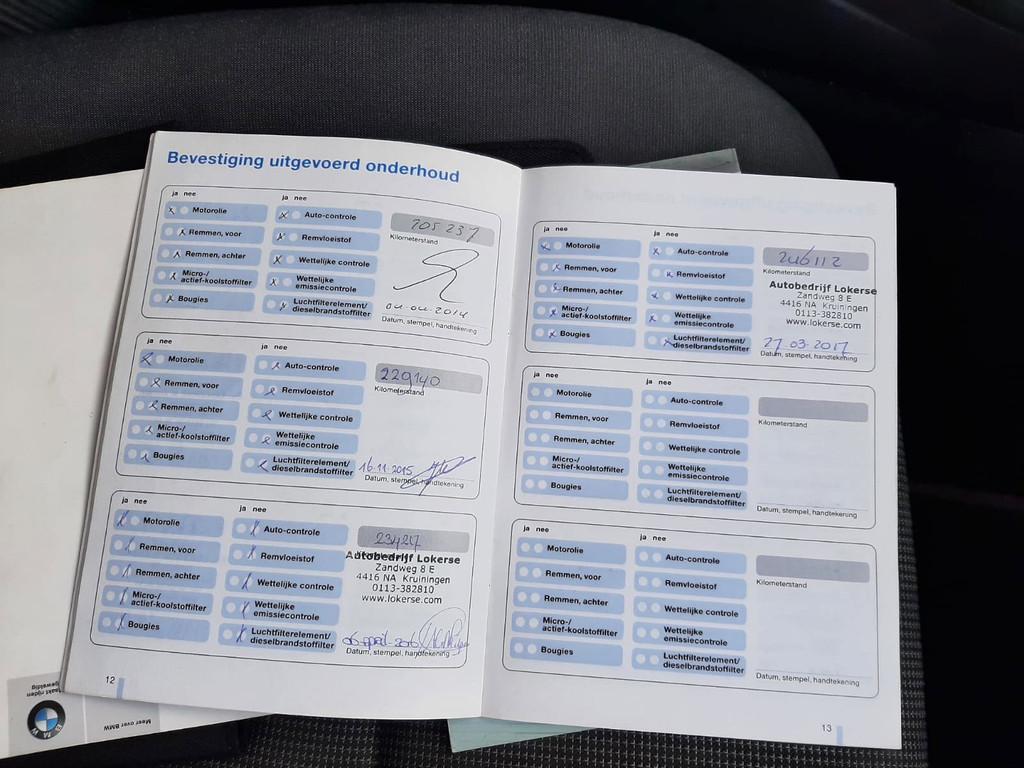 Bevestiging uitgevoerd onderhoud
ja nee
ja nee
Motorolie
Auto-controle
Remmen, voor
Remvloeistof
Remmen, achter
Wettelijke controle
Micro-/
actief-koolstoffilter
Wettelijke
emissiecontrole
Bougies
Luchtfilterelement/
dieselbrandstoffilter
Kilometerstand
04-04-2014
Datum, stempel, handtekening
ja nee
ja nee
Motorolie
Auto-controle
Remmen, voor
Remvloeistof
Remmen, achter
Wettelijke controle
Micro-/
actief-koolstoffilter
Wettelijke
emissiecontrole
Bougies
Luchtfilterelement/
dieselbrandstoffilter
229140
Kilometerstand
16-11-2015
Datum, stempel, handtekening
ja nee
ja nee
Motorolie
Auto-controle
Remmen, voor
Remvloeistof
Remmen, achter
Wettelijke controle
Micro-/
actief-koolstoffilter
Wettelijke
emissiecontrole
Bougies
Luchtfilterelement/
dieselbrandstoffilter
234217
Autobedrijf Lokerse
Zandweg 8 E
4416 NA Kruiningen
0113-382810
www.lokerse.com
06 april 2016
Datum, stempel, handtekening
12
ja nee
ja nee
Motorolie
Auto-controle
Remmen, voor
Remvloeistof
Remmen, achter
Wettelijke controle
Micro-/
actief-koolstoffilter
Wettelijke
emissiecontrole
Bougies
Luchtfilterelement/
dieselbrandstoffilter
246112
Kilometerstand
Autobedrijf Lokerse
Zandweg 8 E
4416 NA Kruiningen
0113-382810
www.lokerse.com
27-03-2017
Datum, stempel, handtekening
ja nee
ja nee
Motorolie
Auto-controle
Remmen, voor
Remvloeistof
Remmen, achter
Wettelijke controle
Micro-/
actief-koolstoffilter
Wettelijke
emissiecontrole
Bougies
Luchtfilterelement/
dieselbrandstoffilter
Kilometerstand
Datum, stempel, handtekening
ja nee
ja nee
Motorolie
Auto-controle
Remmen, voor
Remvloeistof
Remmen, achter
Wettelijke controle
Micro-/
actief-koolstoffilter
Wettelijke
emissiecontrole
Bougies
Luchtfilterelement/
dieselbrandstoffilter
Kilometerstand
Datum, stempel, handtekening
13
Meer over BMW
maakt rijden
geweldig
BMW